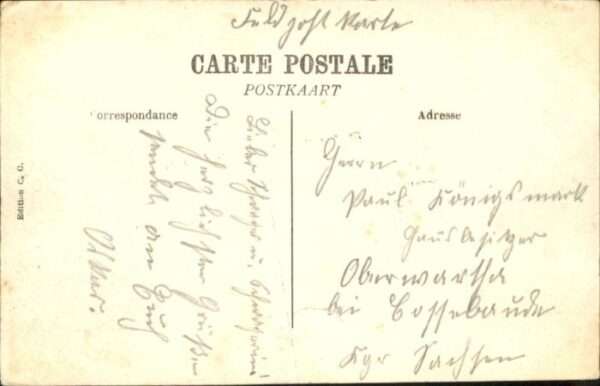 Feldpost Karte
CARTE POSTALE
POSTKAART
Correspondance
Adresse
Edition C. G.
Lieber Schwager u. Schwägerin!
Die herzlichsten Grüße
sendet an Euch
Oskar.
Herrn
Paul Königsmark
Hausbesitzer
Oberwartha
bei Cossebaude
Kgr Sachsen